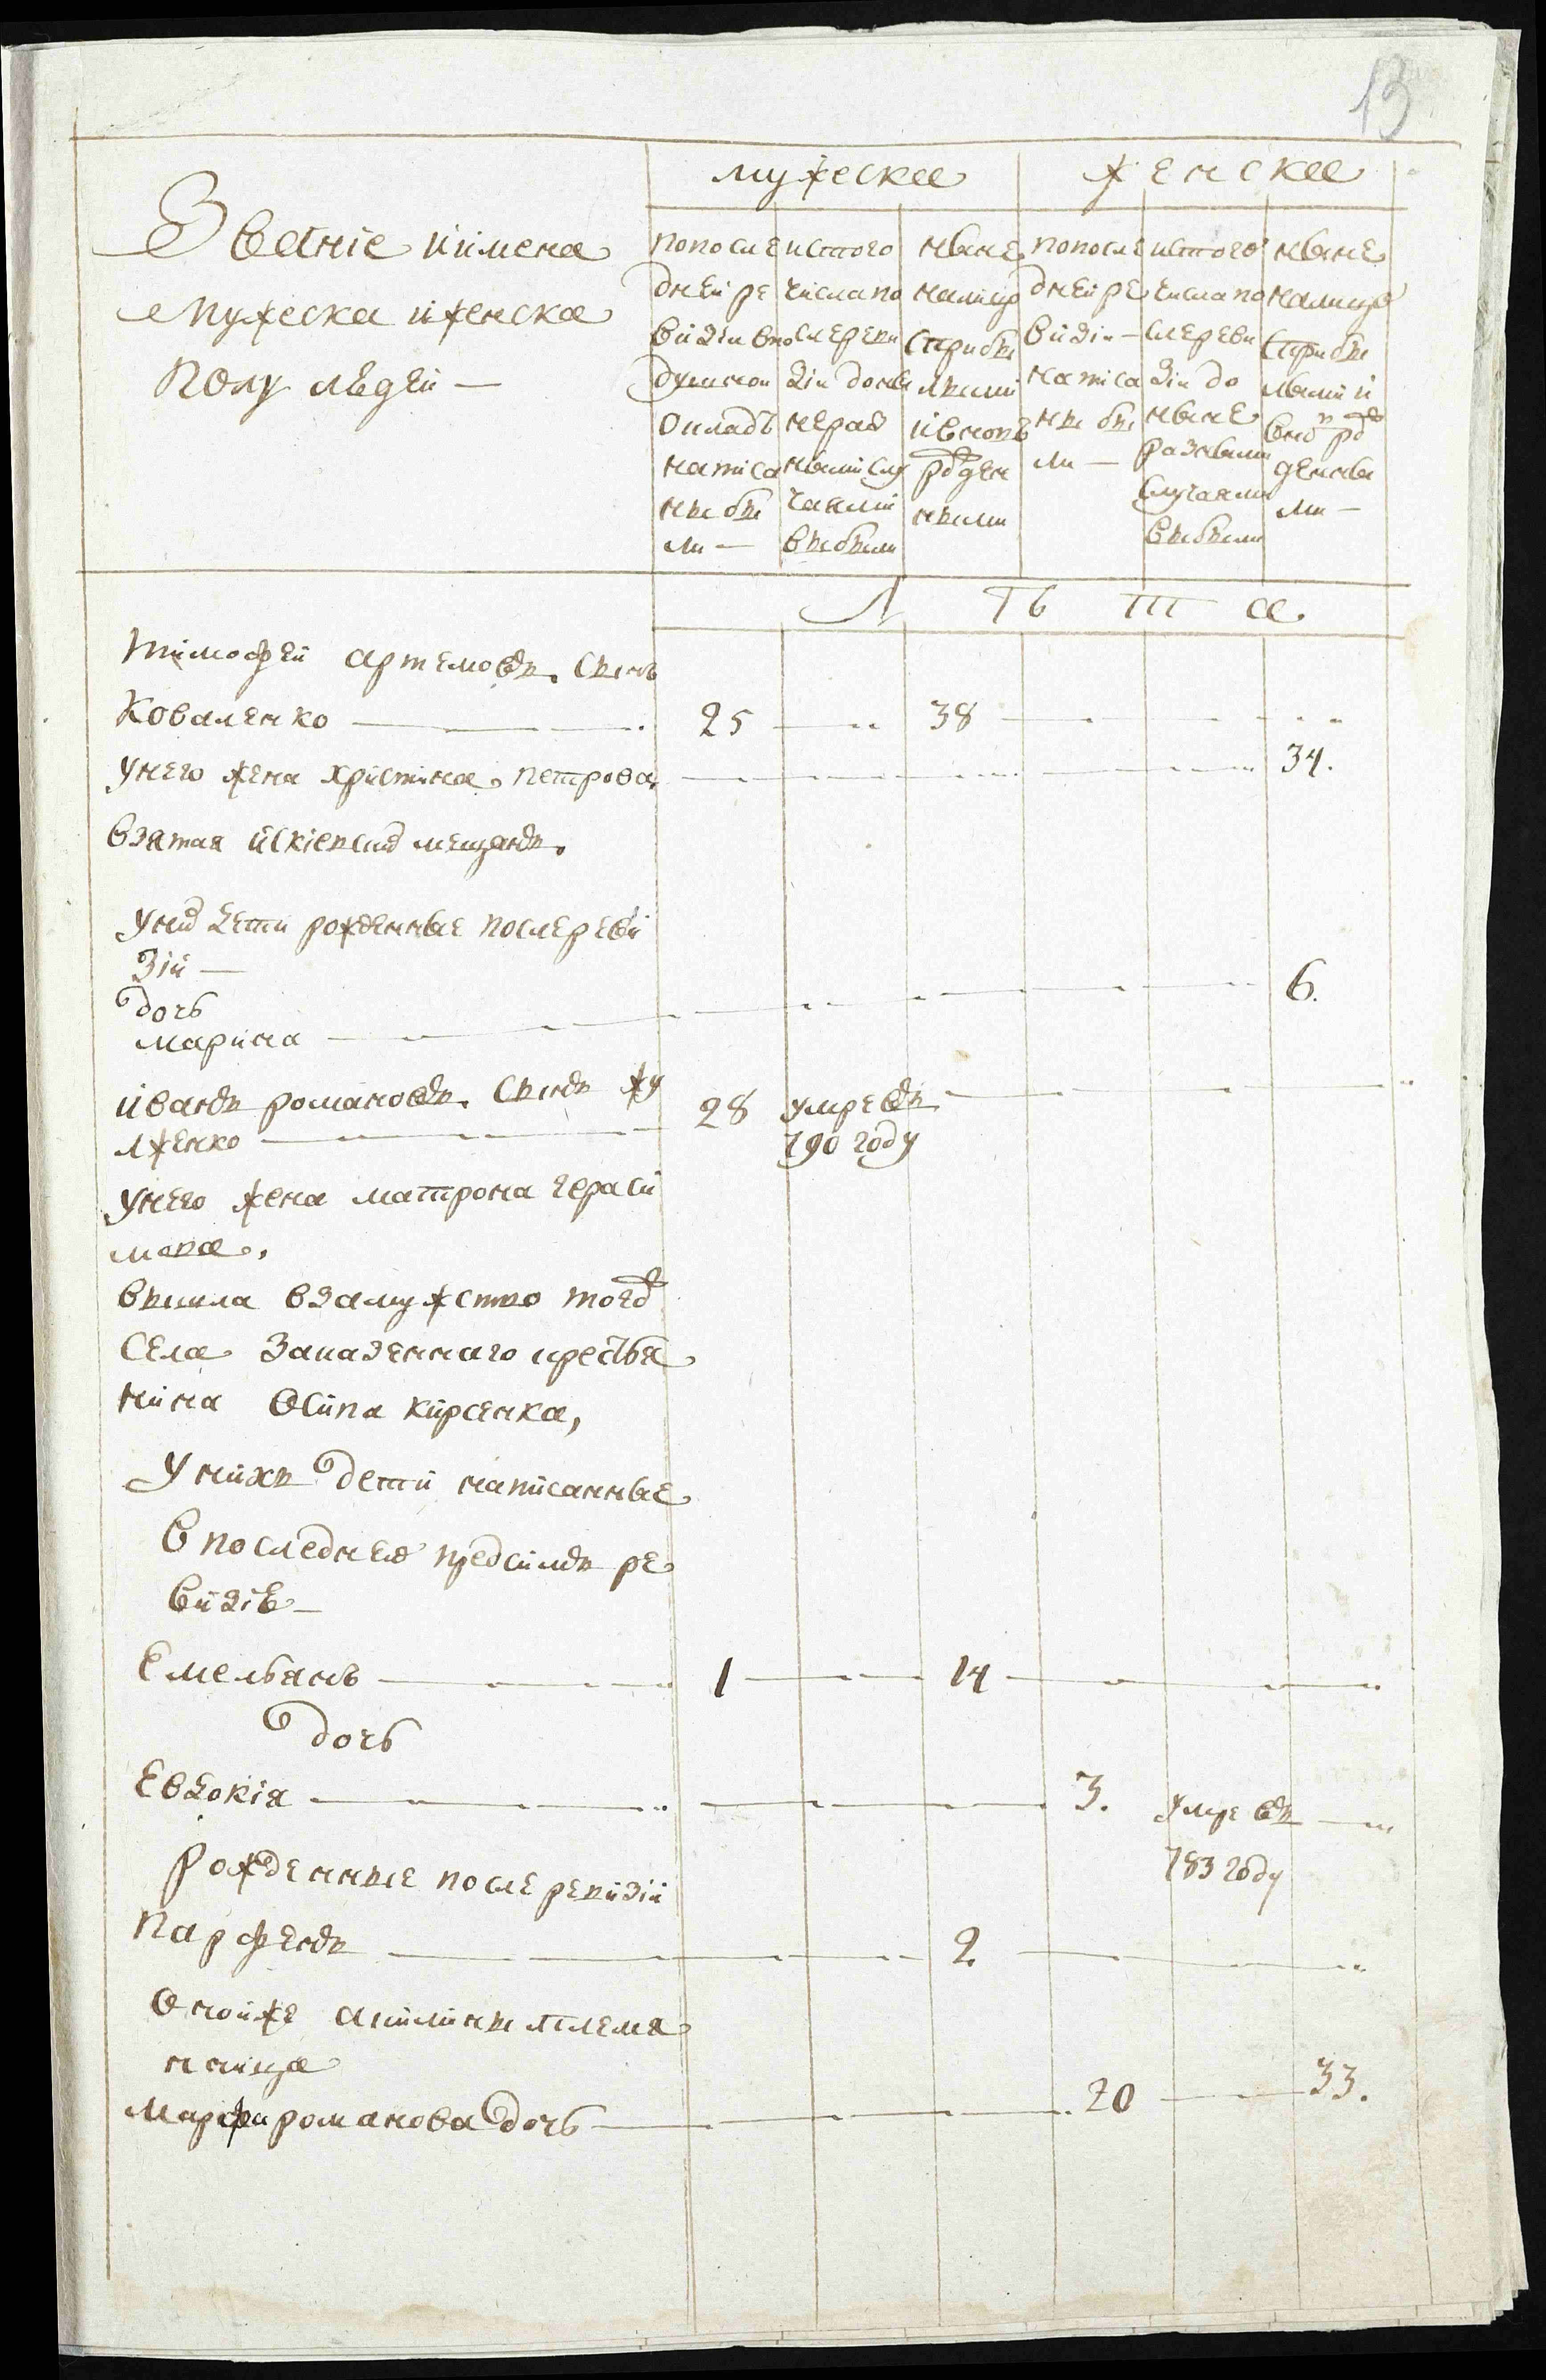 13
Званіе иимена
Мужеска иженска
Полу людей —
мужеска
женска
попосле
дней ре
визіи впо
душной
окладъ
написа
ны бы
ли —
истого
числа по
слереви
зіи доны
не раз
ными слу
чаями
выбыли
ныне
налицо
сприбы
лыми
ивновь
рожден
ными
попосле
дней ре
визіи —
написа
ны бы
ли —
истого
числа по
слереви
зіи до
ныне
разными
случаями
выбыли
ныне
налицо
сприбы
лыми и
вно рож
денны
ми —
Лѣта.
тимофей артемовъ. сынъ
Коваленко — 25 — 38 —
унего жена христина петрова — 34.
взятая искіевских мещанъ.
уних дети рожденные послереви
зіи —
дочь
марина — 6.
иванъ романовъ. сынъ жу
лженко — 28 умре въ —
790 году
унего жена матрона гераси
мова.
вышла взамужство тогож
села Заказенного кресьтя
нина Осипа кирсенка,
Унихъ дети написанные
впоследнею предсимъ ре
визію —
Емельянъ — 1 — 14 —
дочь
Евдокія — 3. умре въ —
783 году
рожденные после ревизіи
Парфенъ — 2 —
Оной же племя
нница
Марфа романова дочь — 20 — 33.